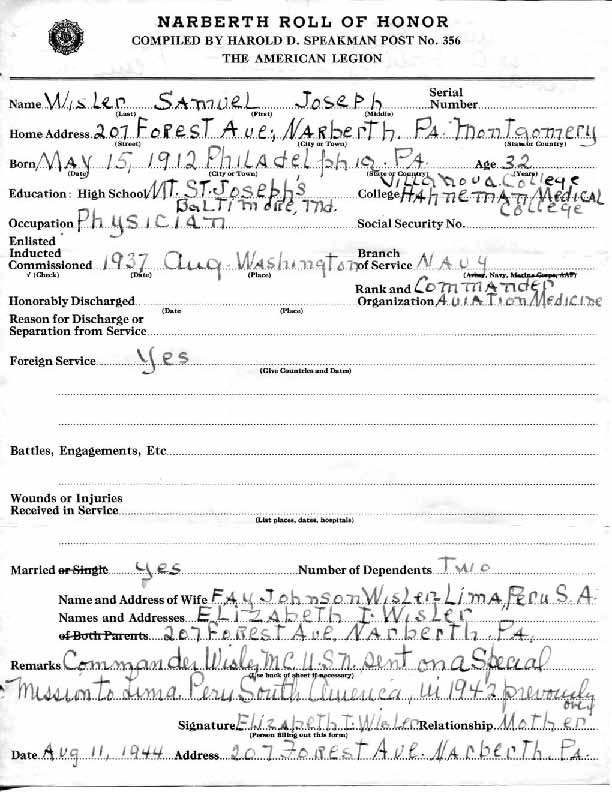 NARBERTH ROLL OF HONOR
COMPILED BY HAROLD D. SPEAKMAN POST No. 356
THE AMERICAN LEGION
Name Wisler Samuel Joseph Serial Number
(Last) (First) (Middle)
Home Address 207 Forest Ave, Narberth. Pa. Montgomery
(Street) (City or Town) (State or Country)
Born May 15, 1912 Philadelphia. Pa. Age 32
(Date) (City or Town) (State or Country) (Years)
Education: High School Mt. St. Joseph's College Villanova College
Baltimore, Md. Hahneman Medical College
Occupation Physician Social Security No.
Enlisted
Inducted Branch
Commissioned 1937 Aug. Washington of Service Navy
√ (Check) (Date) (Place) (Army, Navy, Marine Corps, AAF)
Rank and Commander
Honorably Discharged Organization Aviation Medicine
(Date (Place)
Reason for Discharge or
Separation from Service
Foreign Service Yes
(Give Countries and Dates)
Battles, Engagements, Etc
Wounds or Injuries
Received in Service
(List places, dates, hospitals)
Married or Single yes Number of Dependents Two
Name and Address of Wife Fay Johnson Wisler Lima, Peru S.A.
Names and Addresses Elizabeth I. Wisler
of Both Parents 207 Forest Ave. Narberth. Pa.
Remarks Commander Wisler M.C. U.S.N. sent on a Special
(Use back of sheet if necessary)
Mission to Lima Peru South America, in 1942 prevously
Signature Elizabeth I. Wisler Relationship Mother
(Person filling out this form)
Date Aug 11, 1944 Address 207 Forest Ave. Narberth. Pa.